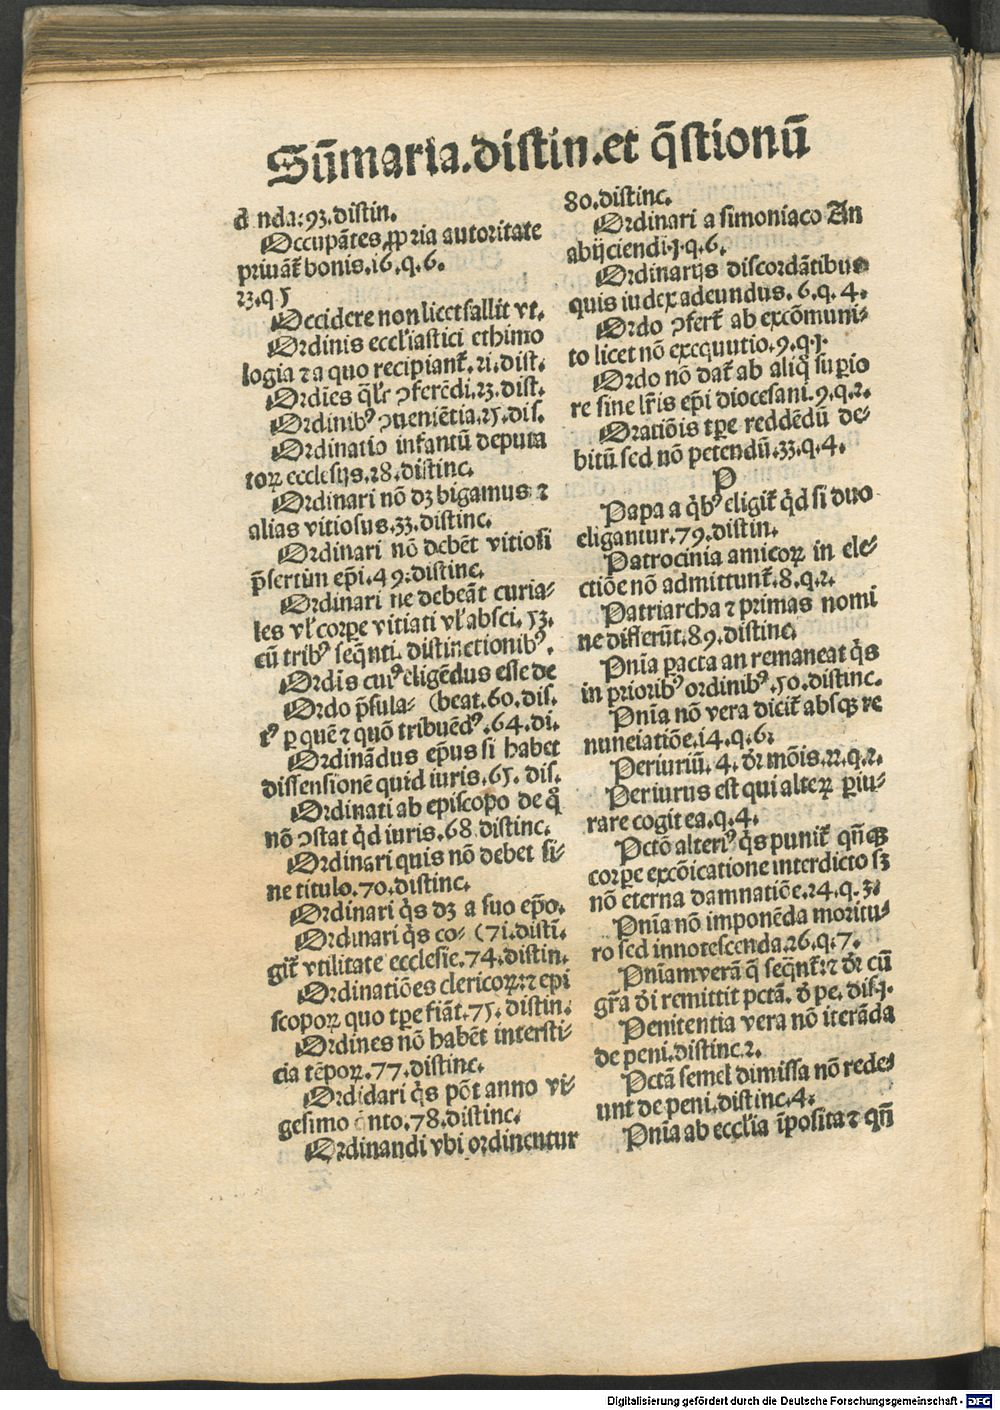 Sūmaria.distin.et q̄stionū
d nda:93.distin.
Occupātes ꝓpria autoritate
priuāt̄ bonis.16.q.6.
23.q.5
Occidere non licet fallit vt.
Ordinis eccl'iastici ethimo
logia ⁊ a quo recipiant̄.21.dist.
Ordīes q̄l'r ꝯferēdi.23.dist.
Ordinibꝰ ꝯueniētia.25.dis.
Ordinatio infantū deputa
torꝝ ecclesijs.28.distinc.
Ordinari nō dꝫ bigamus ⁊
alias vitiosus.33.distinc.
Ordinari nō debēt vitiosi
p̄sertim ep̄i.49.distinc.
Ordinari ne debeāt curia-
les vl' corꝑe vitiati vl' absci.53.
cū tribꝰ seq̄nti.distinctionibꝰ.
Ordīs cuiꝰ eligēdus esse de
Ordo p̄sula- (beat.60.dis.
tꝰ ꝑ quē ⁊ quō tribuēdꝰ.64.di.
Ordinādus ep̄us si habet
dissensionē quid iuris.65.dis.
Ordinati ab episcopo de q̊
nō ꝯstat q̄d iuris.68 distinc.
Ordinari quis nō debet si-
ne titulo.70.distinc.
Ordinari q̄s dꝫ a suo ep̄o.
Ordinari q̄s co- (71.disti.
git̄ vtilitate ecclesie.74.distin.
Ordinatiōes clericorꝝ:⁊ epi
scoporꝝ quo tꝑe fiāt.75.distin.
Ordines nō habēt intersti-
cia tēporꝝ.77.distinc.
Ordidari q̄s pōt anno vi-
gesimo nto.78.distinc.
Ordinandi vbi ordinentur
80.distinc.
Ordinari a simoniaco An
abijciendi.j.q.6.
Ordinarijs discordātibus
quis iudex adeundus.6.q.4.
Ordo ꝯfert̄ ab excōmuni-
to licet nō execquutio.9.q.j.
Ordo nō dat̄ ab aliq̊ suꝑio
re sine lr̄is ep̄i diocesani.9.q.2.
Oratiōis tꝑe reddēdū de-
bitū sed nō petendū.33.q.4.
P
Papa a q̄bꝰ eligit̄ q̄d si duo
eligantur.79.distin.
Patrocinia amicorꝝ in ele-
ctiōe nō admittunt̄.8.q.2.
Patriarcha ⁊ primas nomi
ne differūt.89.distinc.
Pnīa ꝑacta an remaneat q̄s
in prioribꝰ ordinibꝰ.50.distinc.
Pnīa nō vera dicit̄ absqꝫ re
nunciatiōe.14.q.6.
Periuriū.4.dr̄ mōis.22.q.2.
Periurus est qui alterꝝ ꝑiu-
rare cogit ea.q.4.
Pctō alteriꝰ q̄s punit̄ qn̄qꝫ
corꝑe excōicatione interdicto sꝫ
nō eterna damnatiōe.24.q.3.
Pnīa nō imponēda moritu-
ro sed innotescenda.26.q.7.
Pnīam verā q̄ seq̄nt̄:⁊ dr̄ cū
gr̄a d̄i remittit pctā.d̄ pe.dis.j.
Penitentia vera nō iterāda
de peni.distinc.2.
Pctā semel dimissa nō rede-
unt de peni.distinc.4.
Pnīa ab eccl'ia īposita ⁊ qn̄
Digitalisierung gefördert durch die Deutsche Forschungsgemeinschaft - DFG